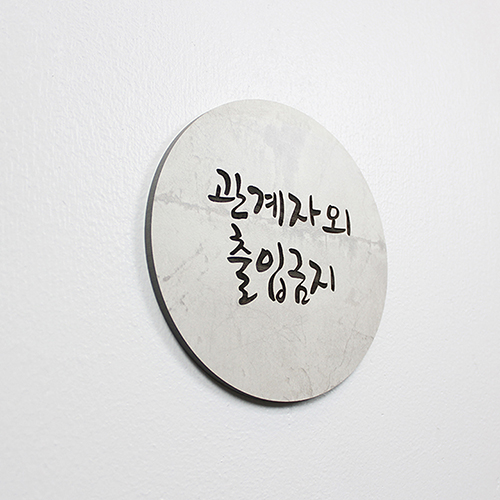 관계자 외
출입금지